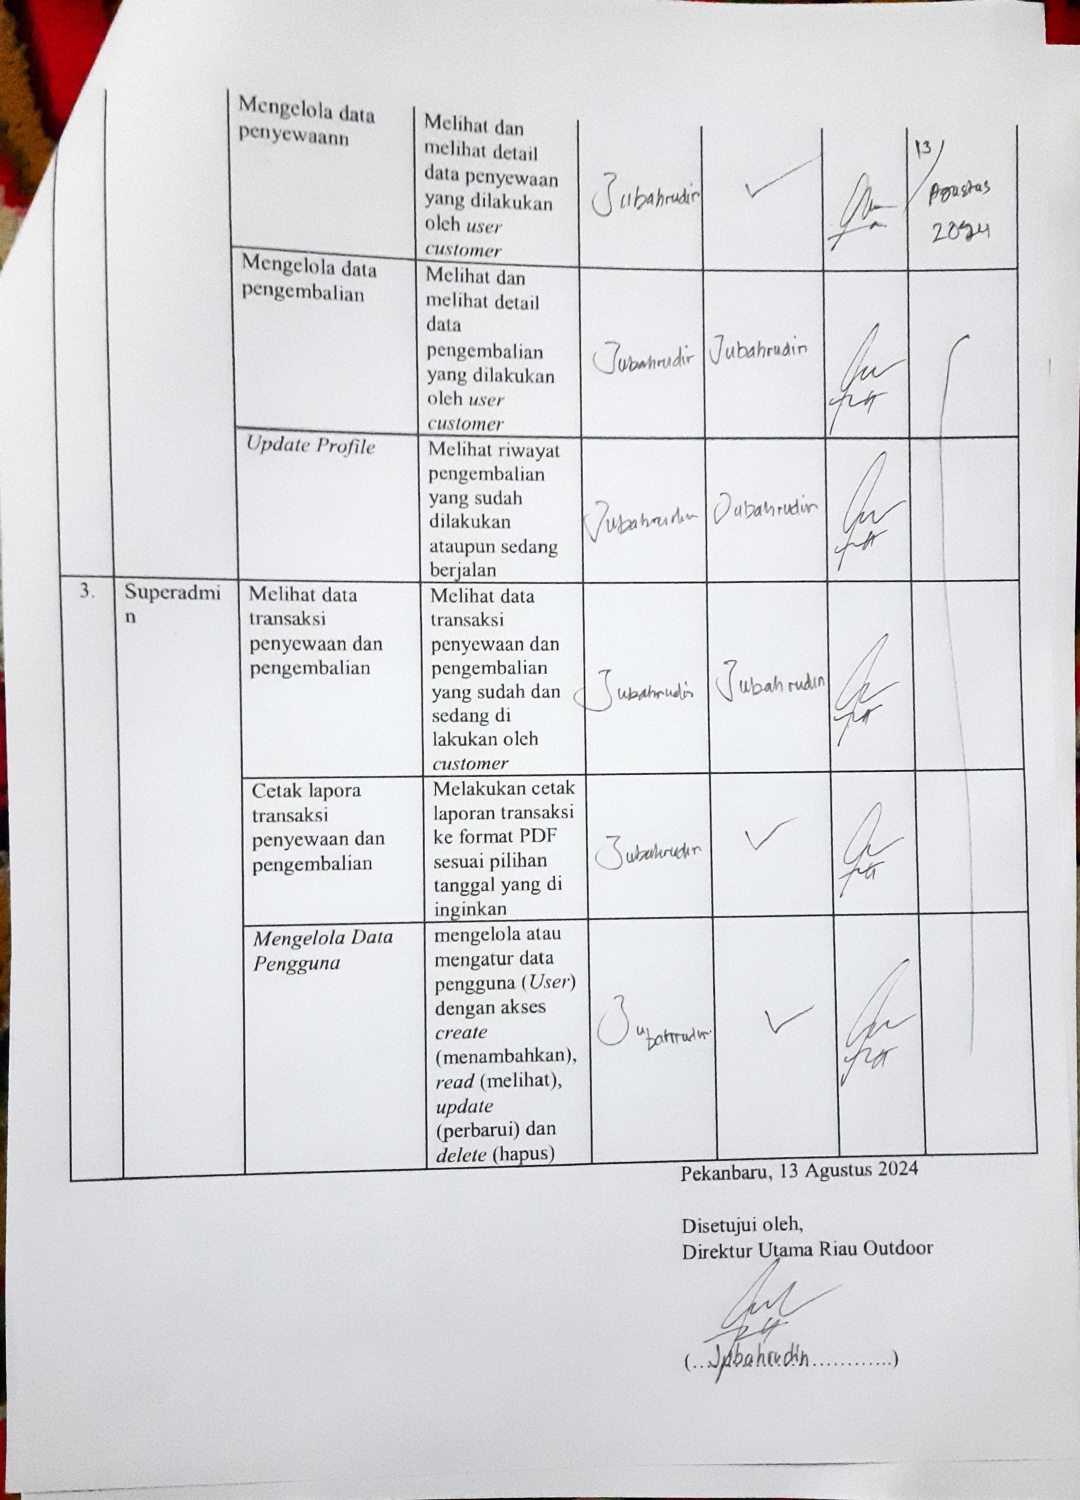 Mengelola data
penyewaann
Melihat dan
melihat detail
data penyewaan
yang dilakukan
oleh user
customer
Jubahrudin
✓
13/
Agustus
2024
Mengelola data
pengembalian
Melihat dan
melihat detail
data
pengembalian
yang dilakukan
oleh user
customer
Jubahrudin
Jubahrudin
Update Profile
Melihat riwayat
pengembalian
yang sudah
dilakukan
ataupun sedang
berjalan
Jubahrudin
Jubahrudin
3.
Superadmi
n
Melihat data
transaksi
penyewaan dan
pengembalian
Melihat data
transaksi
penyewaan dan
pengembalian
yang sudah dan
sedang di
lakukan oleh
customer
Jubahrudin
Jubahrudin
Cetak lapora
transaksi
penyewaan dan
pengembalian
Melakukan cetak
laporan transaksi
ke format PDF
sesuai pilihan
tanggal yang di
inginkan
Jubahrudin
✓
Mengelola Data
Pengguna
mengelola atau
mengatur data
pengguna (User)
dengan akses
create
(menambahkan),
read (melihat),
update
(perbarui) dan
delete (hapus)
Jubahrudin
✓
Pekanbaru, 13 Agustus 2024
Disetujui oleh,
Direktur Utama Riau Outdoor
(..Jubahrudin............)